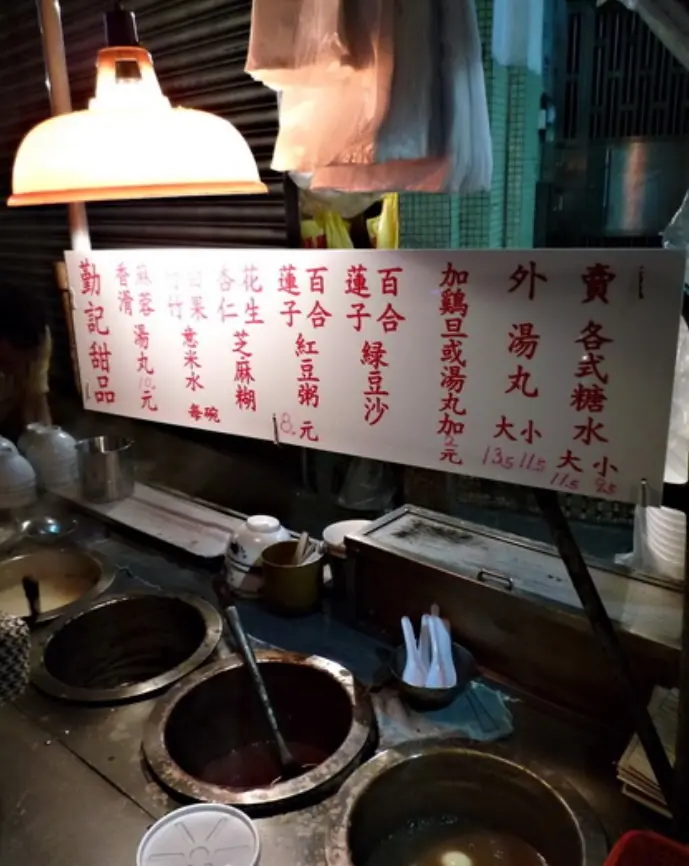 外賣
各式糖水
大 小
11.5 9.5
湯丸
大 小
13.5 11.5
加鷄旦或湯丸加2元
百合
蓮子
綠豆沙
百合
蓮子
紅豆粥
花生
杏仁
芝麻糊
白果
竹
意米水
每碗 8元
麻蓉
香滑
湯丸10元
勤記甜品